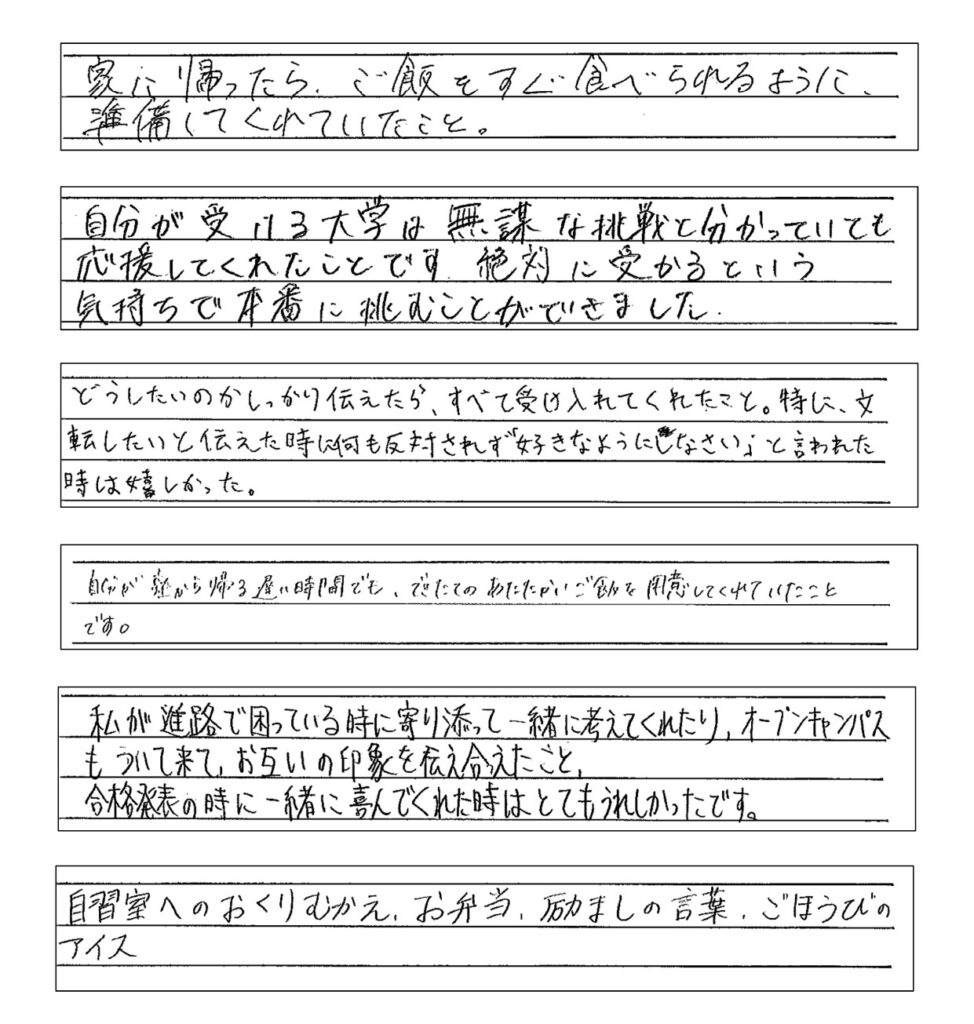 家に帰ったら、ご飯をすぐ食べられるように、
準備してくれていたこと。
自分が受ける大学は無謀な挑戦と分かっていても
応援してくれたことです。絶対に受かるという
気持ちで本番に挑むことができました。
どうしたいのかしっかり伝えたら、すべて受け入れてくれたこと。特に、文
転したいと伝えた時に何も反対されず「好きなようにしなさい」と言われた
時は嬉しかった。
自分が塾から帰る遅い時間でも、できたてのあたたかいご飯を用意してくれていたこと
です。
私が進路で困っている時に寄り添って一緒に考えてくれたり、オープンキャンパス
もついて来て、お互いの印象を伝え合えたこと、
合格発表の時に一緒に喜んでくれた時はとてもうれしかったです。
自習室へのおくりむかえ、お弁当、励ましの言葉、ごほうびの
アイス